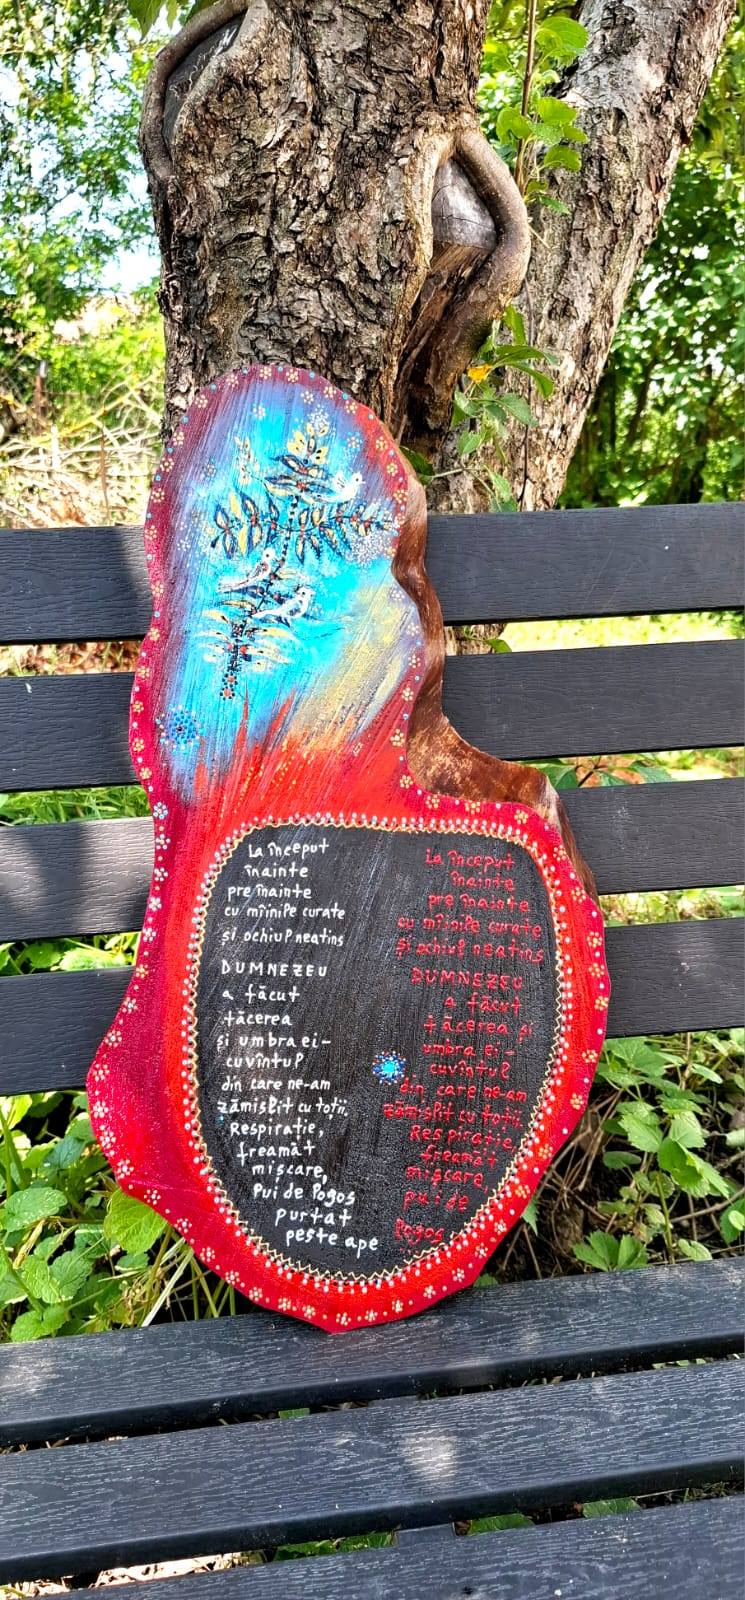 La început
înainte
pre înainte
cu mîinile curate
și ochiul neatins
DUMNEZEU
a făcut
tăcerea
și umbra ei -
cuvîntul
din care ne-am
zămislit cu toții,
Respirație,
freamăt
mișcare,
Pui de Logos
purtat
peste ape
La început
înainte
pre înainte
cu mîinile curate
și ochiul neatins
DUMNEZEU
a făcut
tăcerea și
umbra ei -
cuvîntul
din care ne-am
zămislit cu toții
Respirație,
freamăt
mișcare,
pui de
Logos